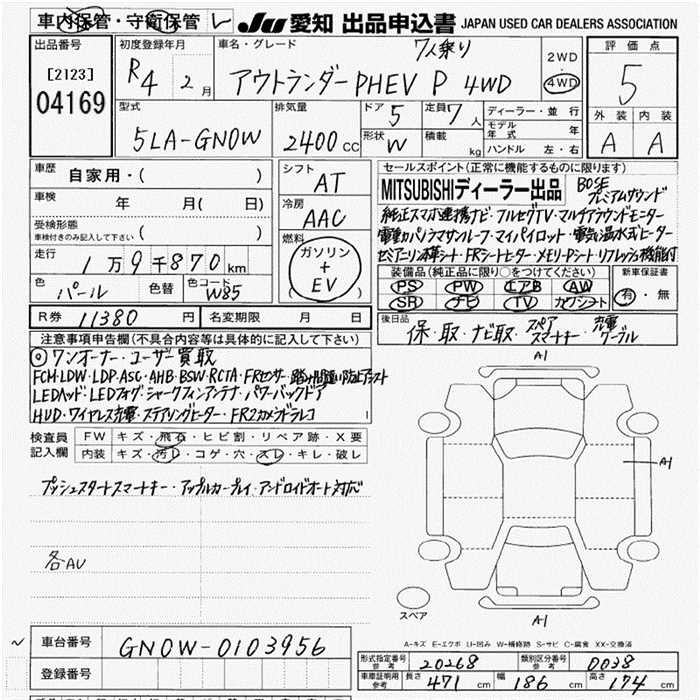 車内保管・守衛保管 レ JU 愛知 出品申込書 JAPAN USED CAR DEALERS ASSOCIATION
出品番号 初度登録年月 車名・グレード 7人乗り 2WD 評価点
[2123] R4 2月 アウトランダーPHEV P 4WD ・ 4WD 5
04169
型式 排気量 ドア 5 定員 7人 ディーラー・並行 外装 内装
5LA-GN0W 2400cc 形状 W 積載 kg モデル年式 年 A A
ハンドル 左・右
車歴 自家用・( ) シフト AT セールスポイント(正常に機能するものに限ります)
車検 年 月( 日) 冷房 AAC MITSUBISHIディーラー出品 BOSEプレミアムサウンド
純正スマホ連携ナビ・フルセグTV・マルチアラウンドモニター
受検形態 車検付きのみ記入して下さい ( ) 燃料 ガソリン+EV 電動パノラマサンルーフ・マイパイロット・電気温水式ヒーター
走行 1万9千870km セミアニリン革シート・FRシートヒーター・メモリPシート・リフレッシュ機能付
色 パール 色替 色コード W85 ( ) 装備品(純正品に限り○をつけてください) 新車保証書
PS PW エアB AW 有・無
SR ナビ TV カワシート
R券 11380円 名変期限 月 日 後日品 保・取・ナビ取・スペアスマーキー・充電ケーブル
注意事項申告欄(不具合内容等は具体的に記入して下さい)
◎ワンオーナー・ユーザー買取
FCM・LDW・LDP・ASC・AHB・BSW・RCTA・FRセンサー・踏み間違い防止アシスト
LEDヘッド・LEDフォグ・シャークフィンアンテナ・パワーバックドア
HUD・ワイヤレス充電・ステアリングヒーター・FR2カメラドラレコ
検査員記入欄 FW キズ・飛石・ヒビ割・リペア跡・X要
内装 キズ・汚レ・コゲ・穴・スレ・キレ・破レ
プッシュスタートスマートキー・アップルカープレイ・アンドロイドオート対応
各AU
A1
A1
A1
スペア
A-キズ E-エクボ U-凹み W-補修跡 S-サビ C-腐食 XX-交換済
~ 車台番号 GN0W-0103956
登録番号
形式指定番号 参考 20268 類別区分番号 参考 0038
車庫証明用 参考 長さ 471cm 幅 186cm 高さ 174cm